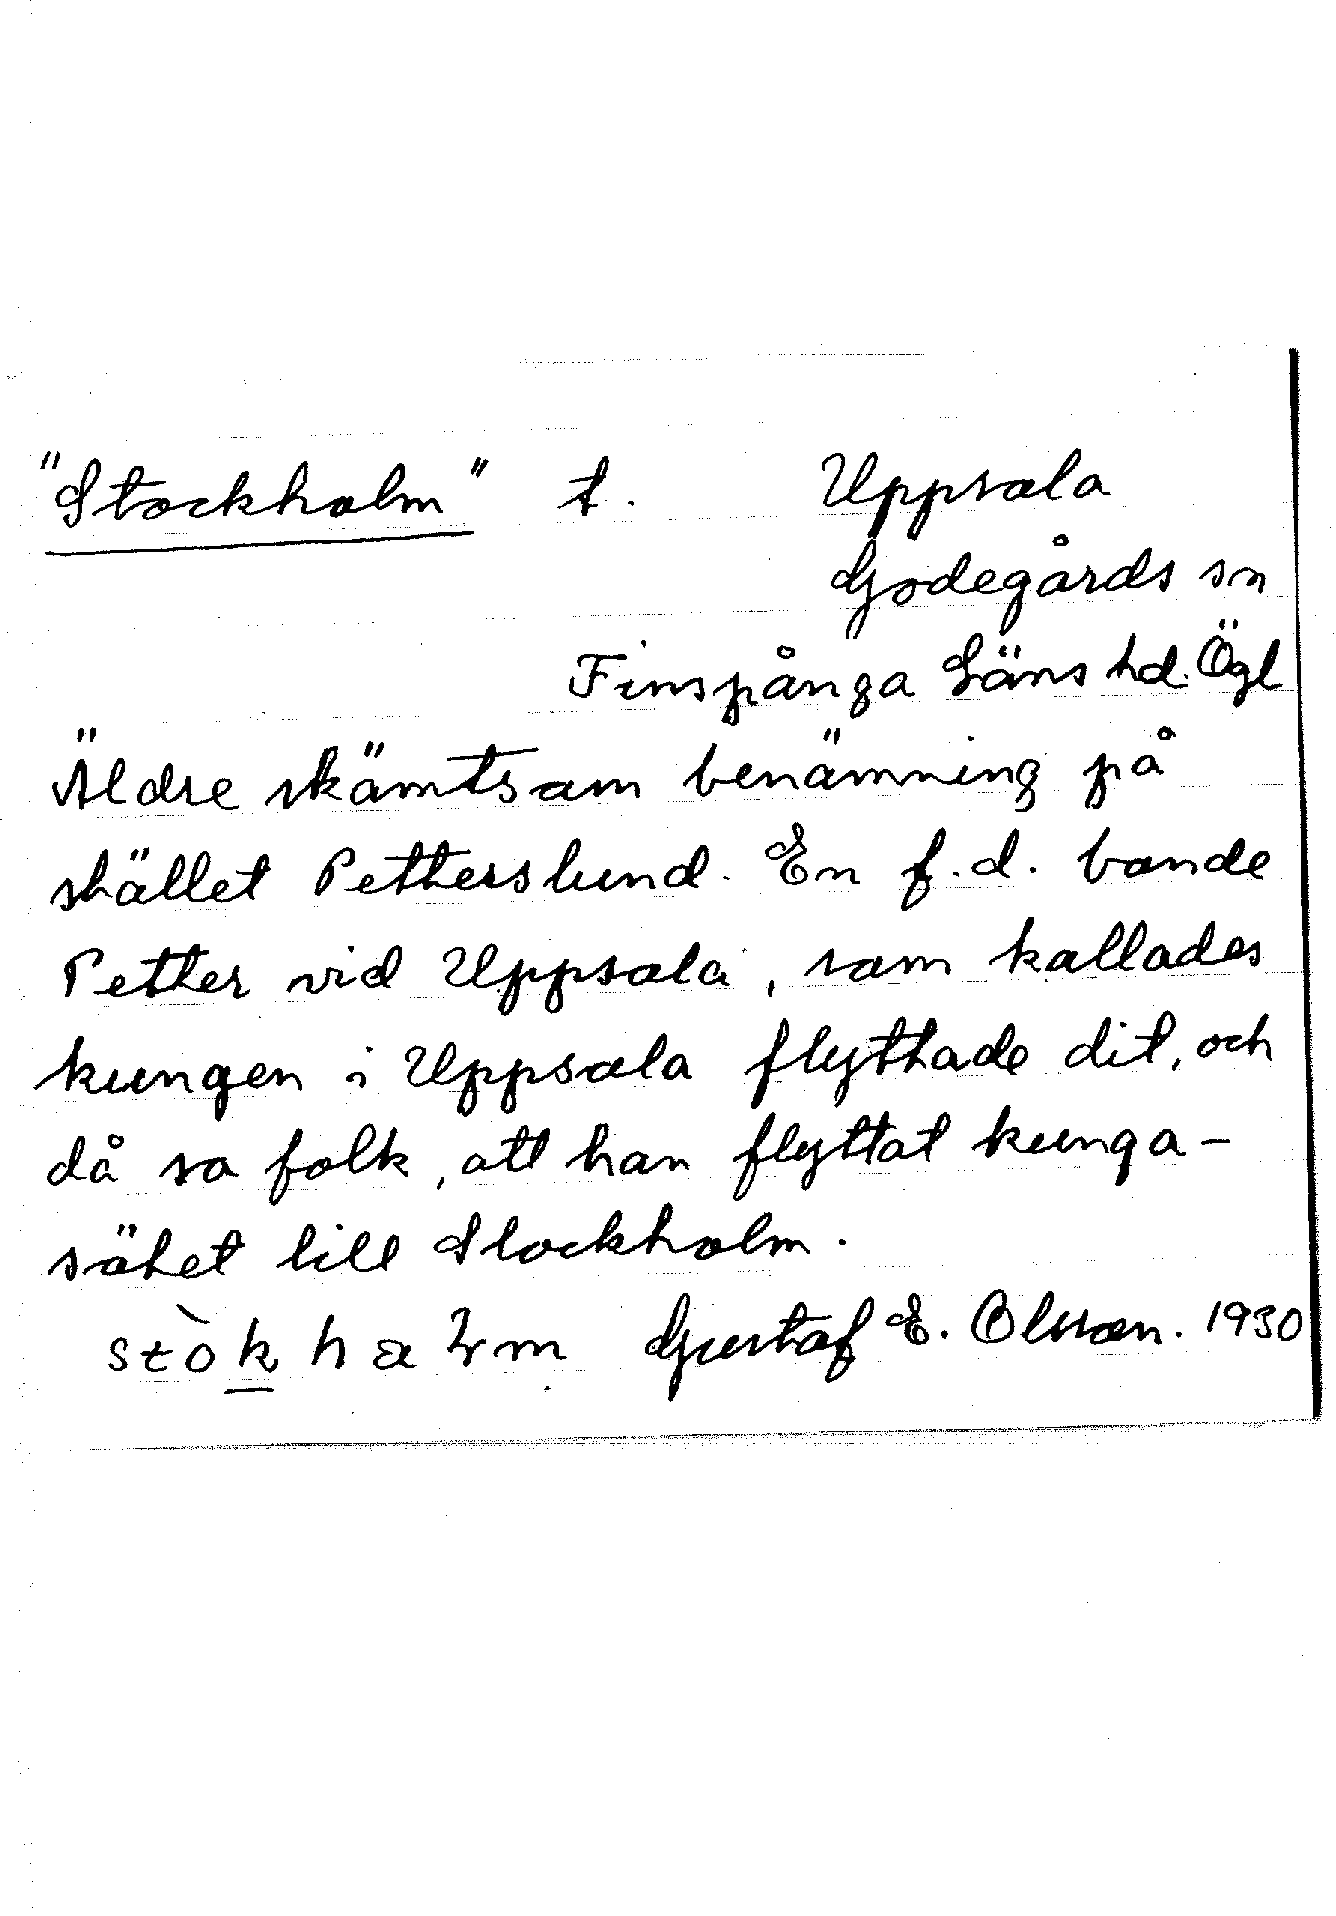 "Stockholm" t. Uppsala
Godegårds sn
Finspånga Läns hd. Ögl
Äldre skämtsam benämning på
stället Petterslund. En f.d. bonde
Petter vid Uppsala, som kallades
kungen i Uppsala flyttade dit, och
då sa folk, att han flyttat kunga-
sätet till Stockholm.
Gustaf E. Olsson. 1930